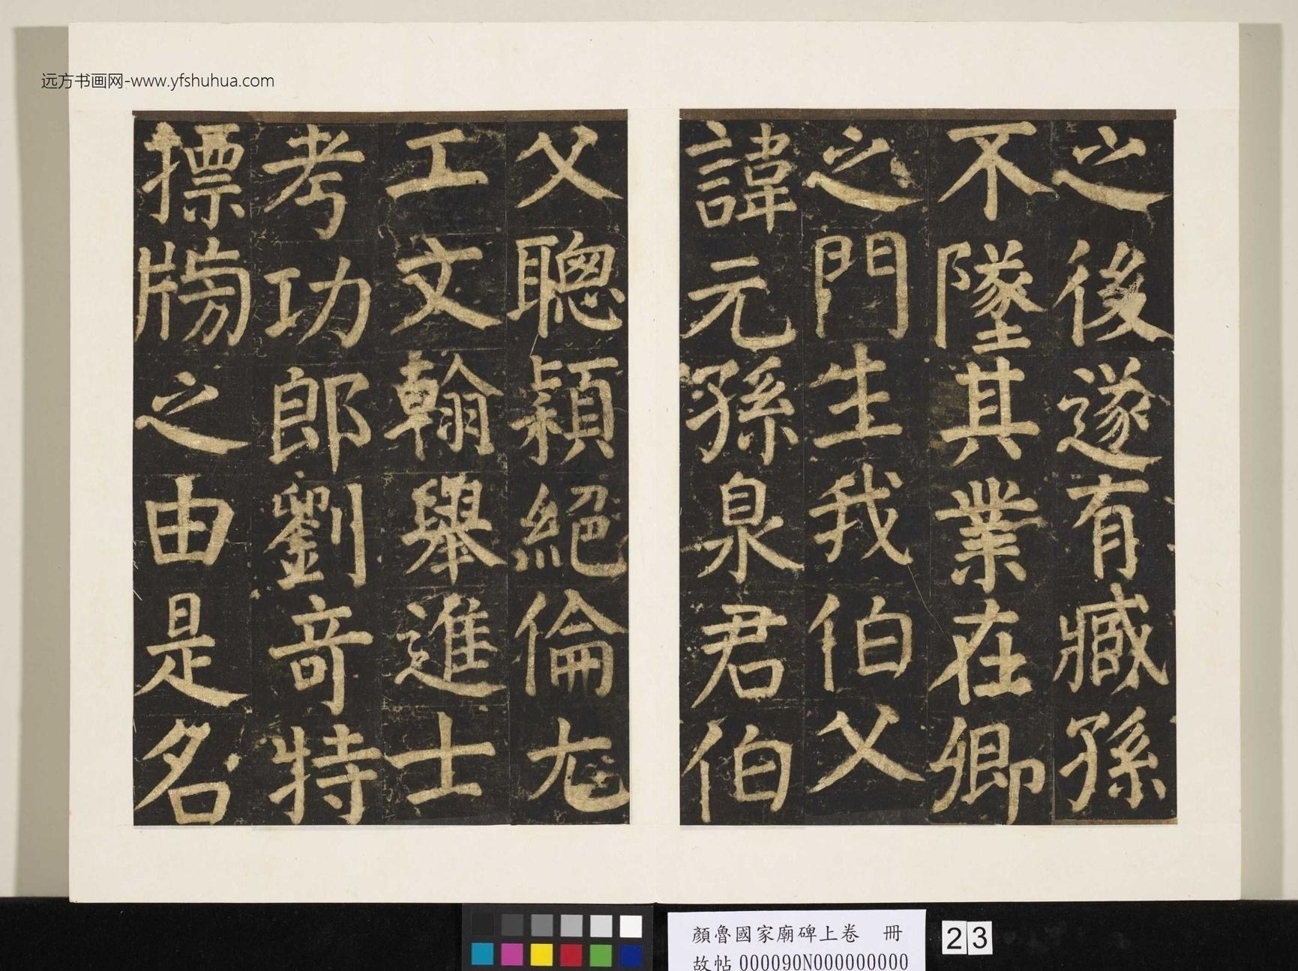 远方书画网-www.yfshuhua.com
之後遂有臧孫
不墜其業在卿
之門生我伯父
諱元孫泉君伯
父聰穎絕倫尤
工文翰舉進士
考功郎劉奇特
摽牓之由是名
顏魯國家廟碑上卷 冊
故帖 000090N000000000
23